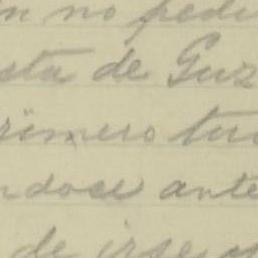 n no pedi
sta de Guz
rimero tu
ndose ante
de irse